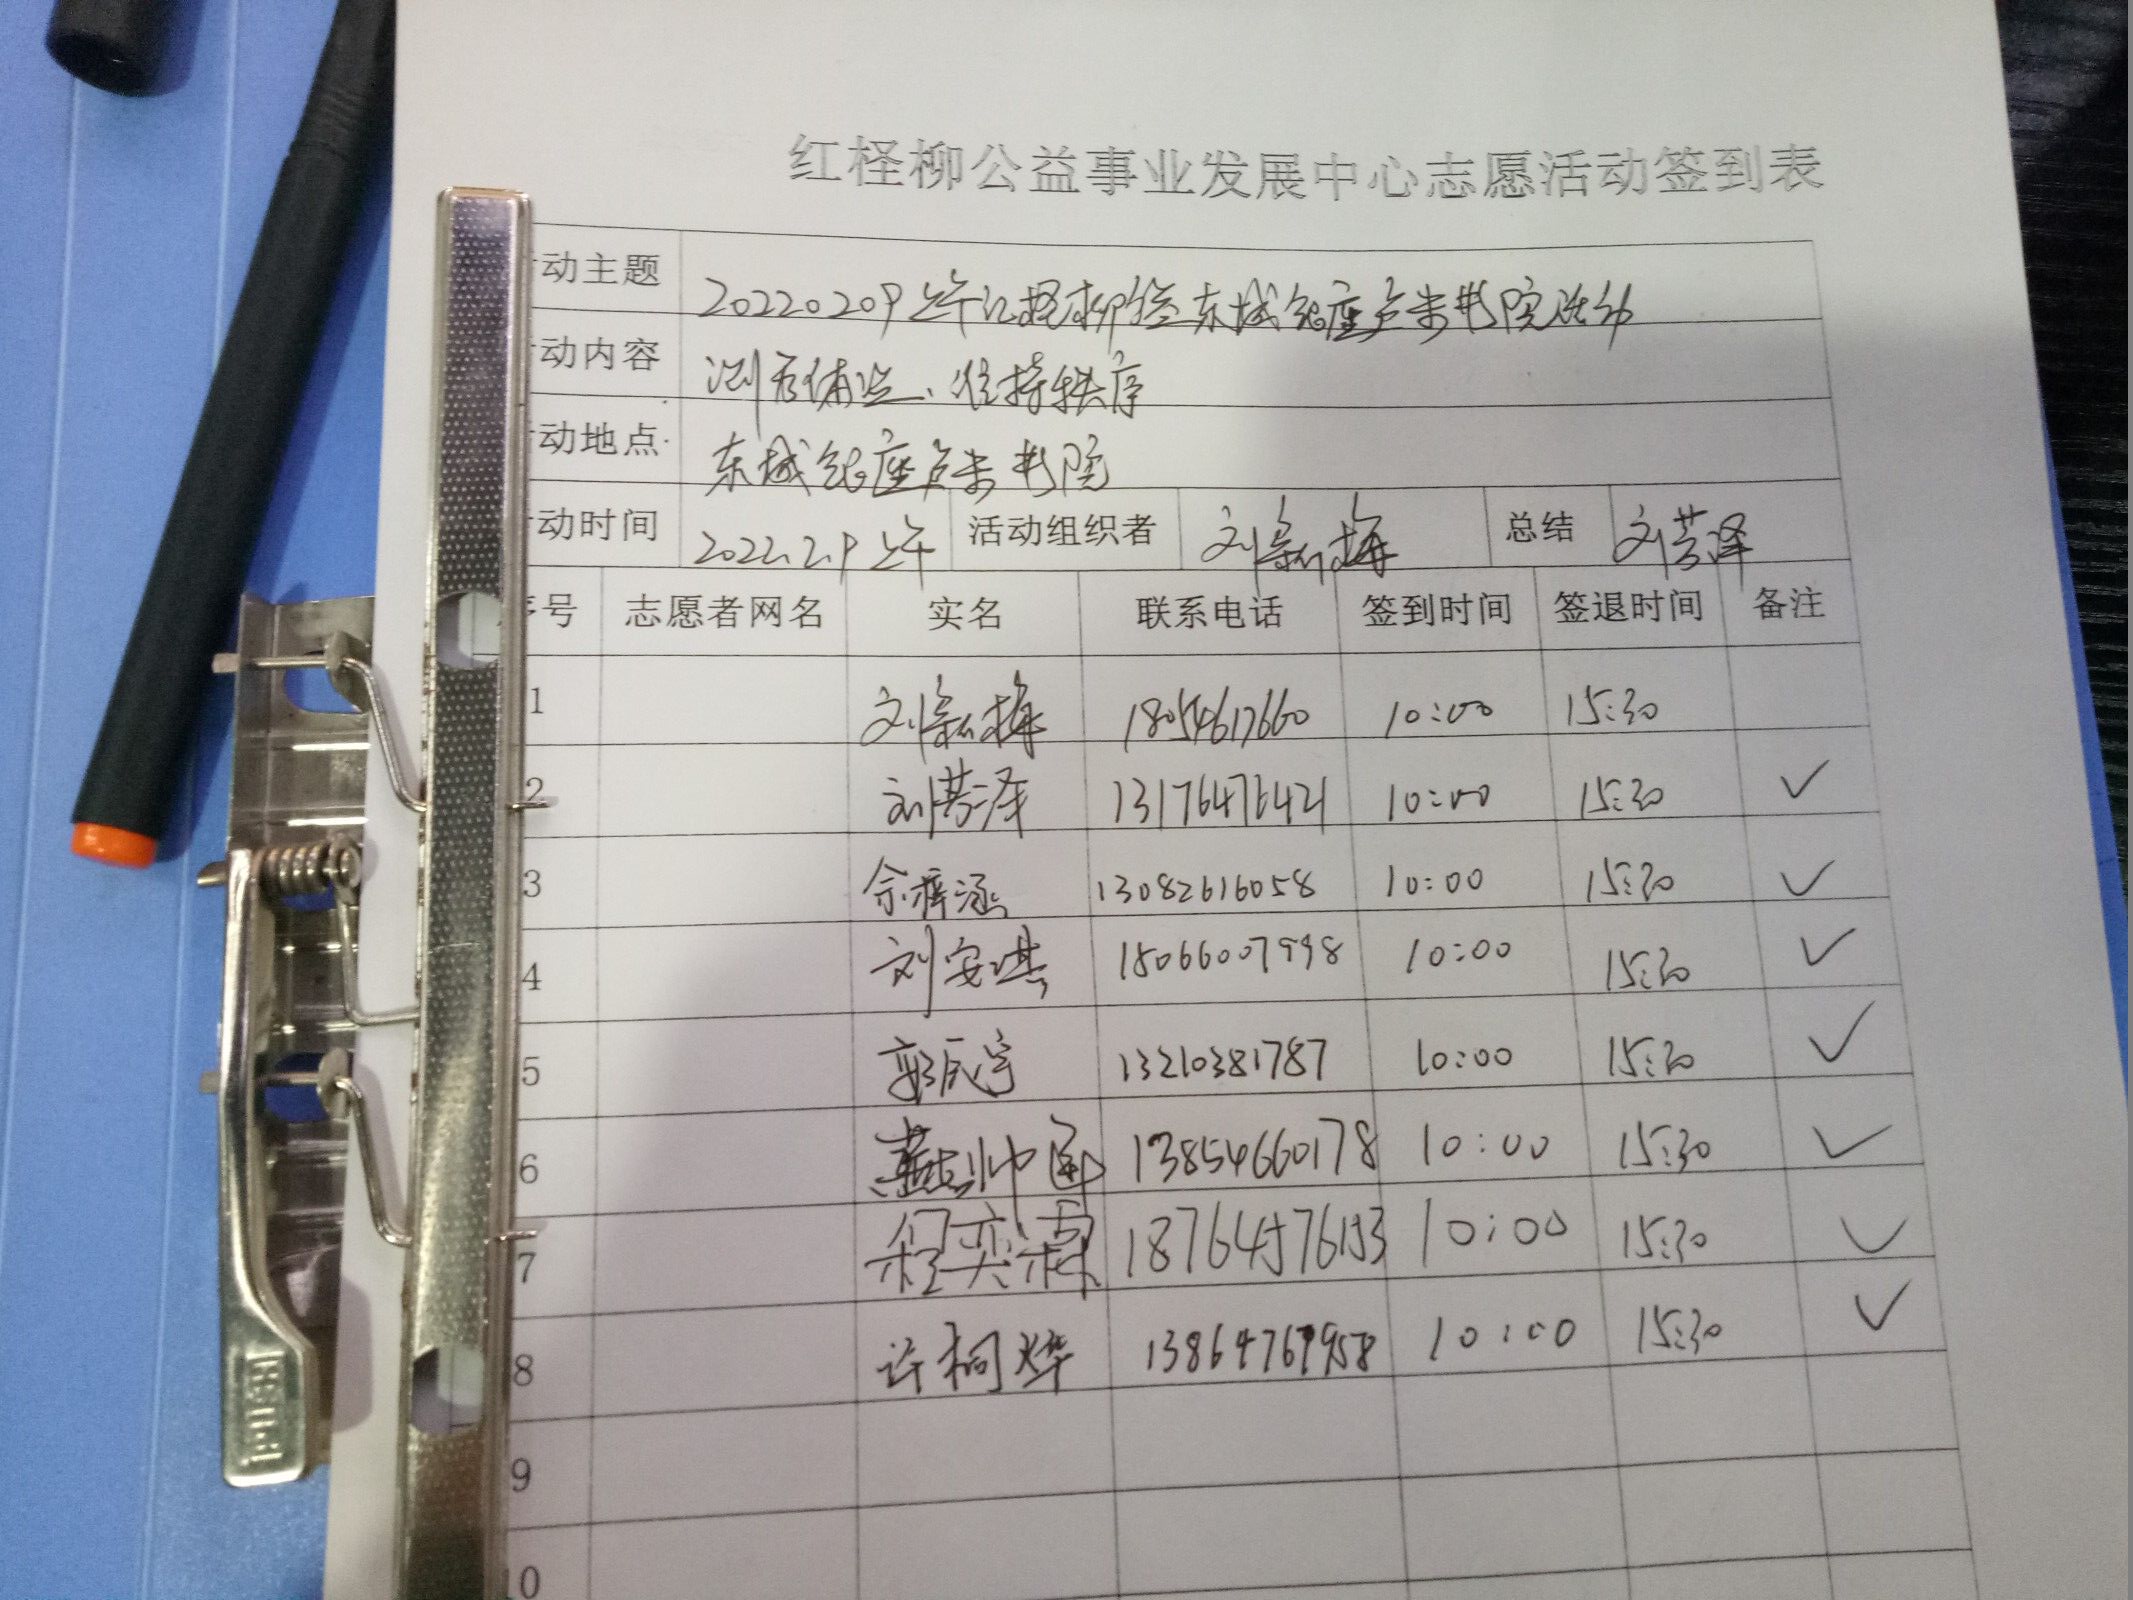 红柽柳公益事业发展中心志愿活动签到表
动主题 20220209上午红柽柳 东城银座 书院活动
动内容 测石体温、维持秩序
动地点 东城银座 书院
动时间 2022.2.9上午 活动组织者 刘新梅 总结 刘芸泽
序号 志愿者网名 实名 联系电话 签到时间 签退时间 备注
1 刘新梅 18054617660 10:00 15:30
2 刘芸泽 13176476421 10:00 15:30 ✓
3 佘梓涵 13082616058 10:00 15:30 ✓
4 刘安琪 15066007998 10:00 15:30 ✓
5 郭辰宇 13210381787 10:00 15:30 ✓
6 13854660178 10:00 15:30 ✓
7 程奕霖 10:00 15:30 ✓
8 许桐烨 10:00 15:30 ✓
9
10